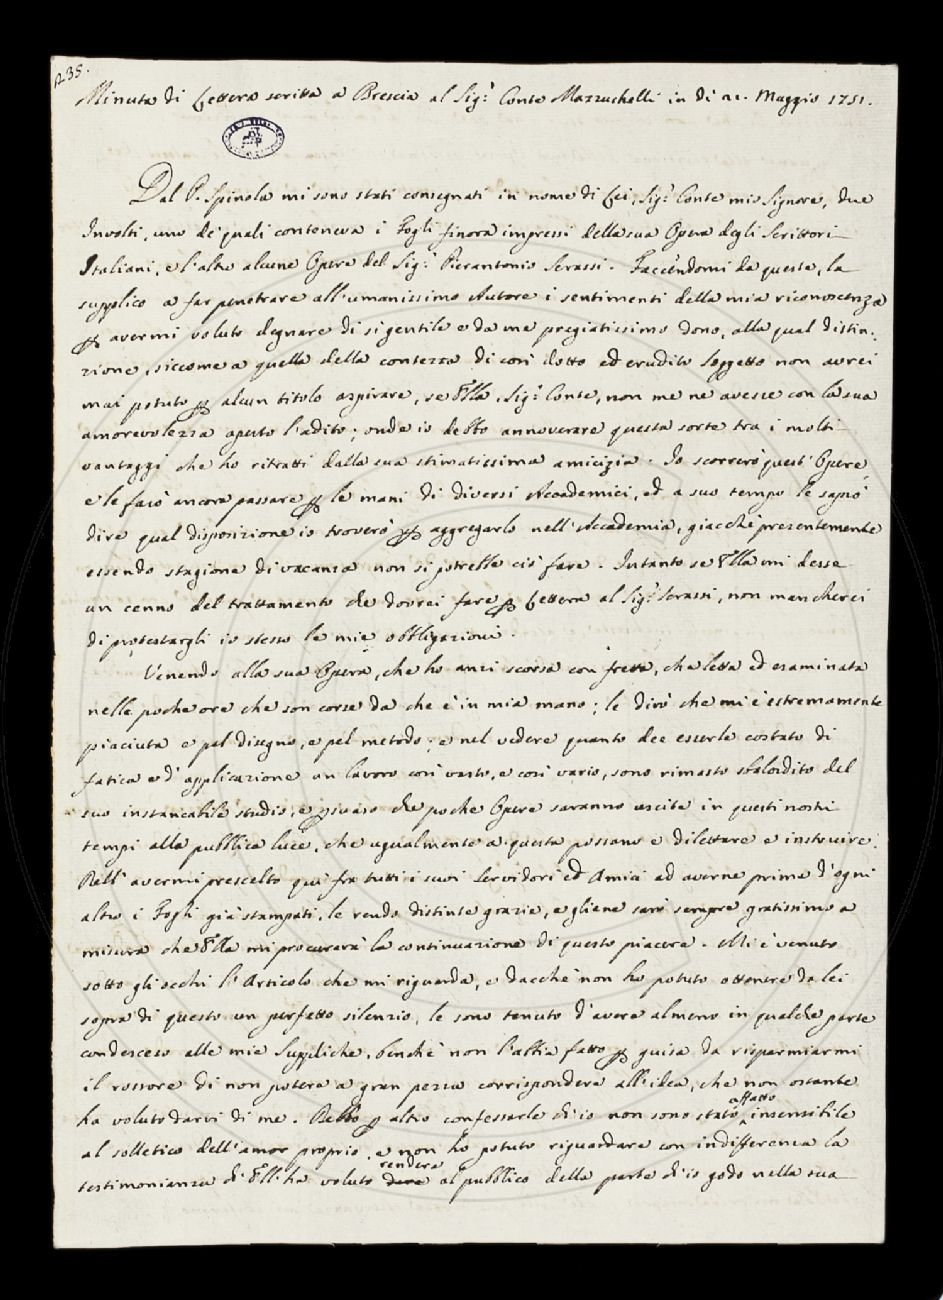 1235.
Minuta di Lettera scritta a Brescia al Sig.r Conte Mazzuchelli in di 21. Maggio 1751.
Dal P. Spinola mi sono stati consegnati in nome di Lei, Sig.r Conte mio Signore, due
Involti, uno de' quali conteneva i Fogli finora impressi della sua Opera degli Scrittori
Italiani, e l'altro alcune Opere del Sig.r Pierantonio Serassi. Facendomi da queste, la
supplico a far penetrare all'umanissimo Autore i sentimenti della mia riconoscenza
p avermi voluto degnare di sì gentile e da me pregiatissimo dono, alla qual distin-
zione, siccome a quella della contezza di così dotto ed erudito Soggetto non avrei
mai potuto p alcun titolo aspirare, se Ella, Sig.r Conte, non me ne avesse con la sua
amorevolezza aperto l'adito; onde io debbo annoverare questa sorte tra i molti
vantaggi che ho ritratti dalla sua stimatissima amicizia. Io scorrerò questi Opere,
e le farò ancora passare p le mani di diversi Accademici, ed a suo tempo le saprò
dire qual disposizione io troverò p aggregarlo nell'Accademia, giacchè presentemente
essendo stagione di vacanza non si potrebbe ciò fare. Intanto se Ella mi desse
un cenno del trattamento che dovrei fare p Lettera al Sig.r Serassi, non mancherei
di protestargli io stesso le mie obbligazioni.
Venendo alla sua Opera, che ho anzi scorsa con fretta, che letta ed esaminata
nelle poche ore che son corse da che è in mia mano; le dirò che mi è estremamente
piaciuta e pel disegno, e pel metodo; e nel vedere quanto dee esserle costato di
fatica e d'applicazione un lavoro così vasto, e così vario, sono rimasto sbalordito del
suo instancabile studio, e psuaso che poche Opere saranno uscite in questi nostri
tempi alla pubblica luce, che ugualmente a questa possano e dilettare e instruire.
Dell'avermi prescelto qui fra tutti i suoi Servidori ed Amici ad averne prima d'ogni
altro i Fogli già stampati, le rendo distinte grazie, e gliene sarò sempre gratissimo a
misura che Ella mi procurerà la continuazione di questo piacere. Mi è venuto
sotto gli occhi l'Articolo che mi riguarda, e dacchè non ho potuto ottenere da lei
sopra di questo un perfetto silenzio, le sono tenuto d'avere almeno in qualche parte
condesceso alle mie Suppliche, benchè non l'abbia fatto p guisa da risparmiarmi
il rossore di non potere a gran pezza corrispondere all'idea, che non ostante
ha voluto darvi di me. Debbo p altro confessarle ch'io non sono stato affatto insensibile
al solletico dell'amor proprio, e non ho potuto riguardare con indifferenza la
testimonianza ch'Ell'ha voluto dare rendere al pubblico della parte ch'io godo nella sua